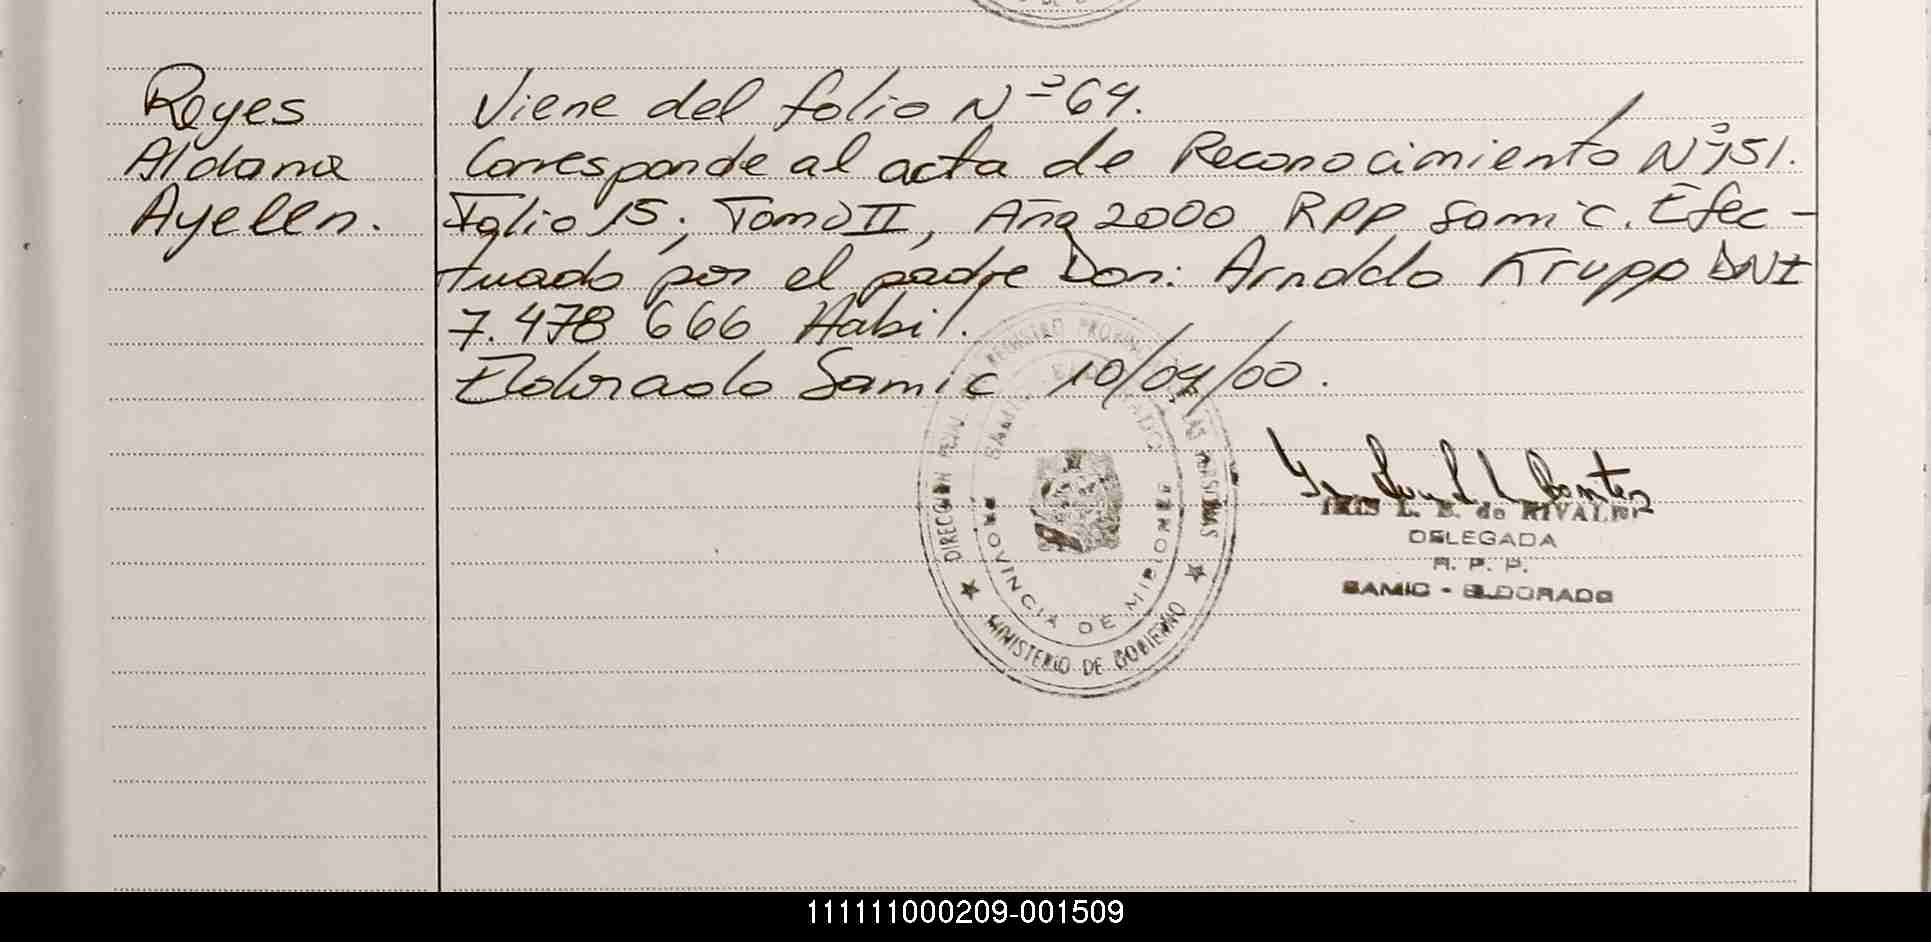 Reyes
Aldana
Ayelen.
Viene del folio Nº 64.
Corresponde al acta de Reconocimiento Nº 151.
Folio 15, Tomo II, Año 2000 RPP Samic. Efec-
tuado por el padre Don: Arnoldo Krupp DNI
7.478 666 Habil.
Eldorado Samic 10/04/00.
DIRECCION REGISTRO PROVINCIAL DE LAS PERSONAS
MINISTERIO DE GOBIERNO
SAMIC ELDORADO
PROVINCIA DE MISIONES
IRIS L. B. de
DELEGADA
R. P. P.
SAMIC - ELDORADO
111111000209-001509